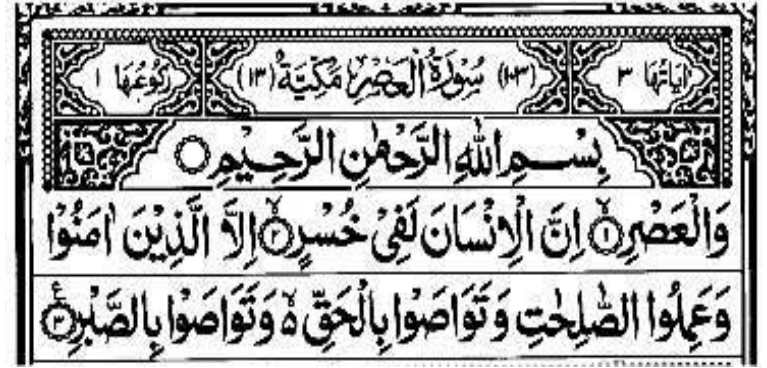 اٰيَاتُهَا ٣ (١٠٣) سُوْرَةُ الْعَصْرِ مَكِّيَّةٌ (١٣) رُكُوْعُهَا ١
بِسْــمِ اللّٰهِ الرَّحْمٰنِ الرَّحِيْمِ
وَالْعَصْرِۙ ١ اِنَّ الْاِنْسَانَ لَفِيْ خُسْرٍۙ ٢ اِلَّا الَّذِيْنَ اٰمَنُوْا
وَعَمِلُوا الصّٰلِحٰتِ وَتَوَاصَوْا بِالْحَقِّ ۙ۬ وَتَوَاصَوْا بِالصَّبْرِ ٣ ع